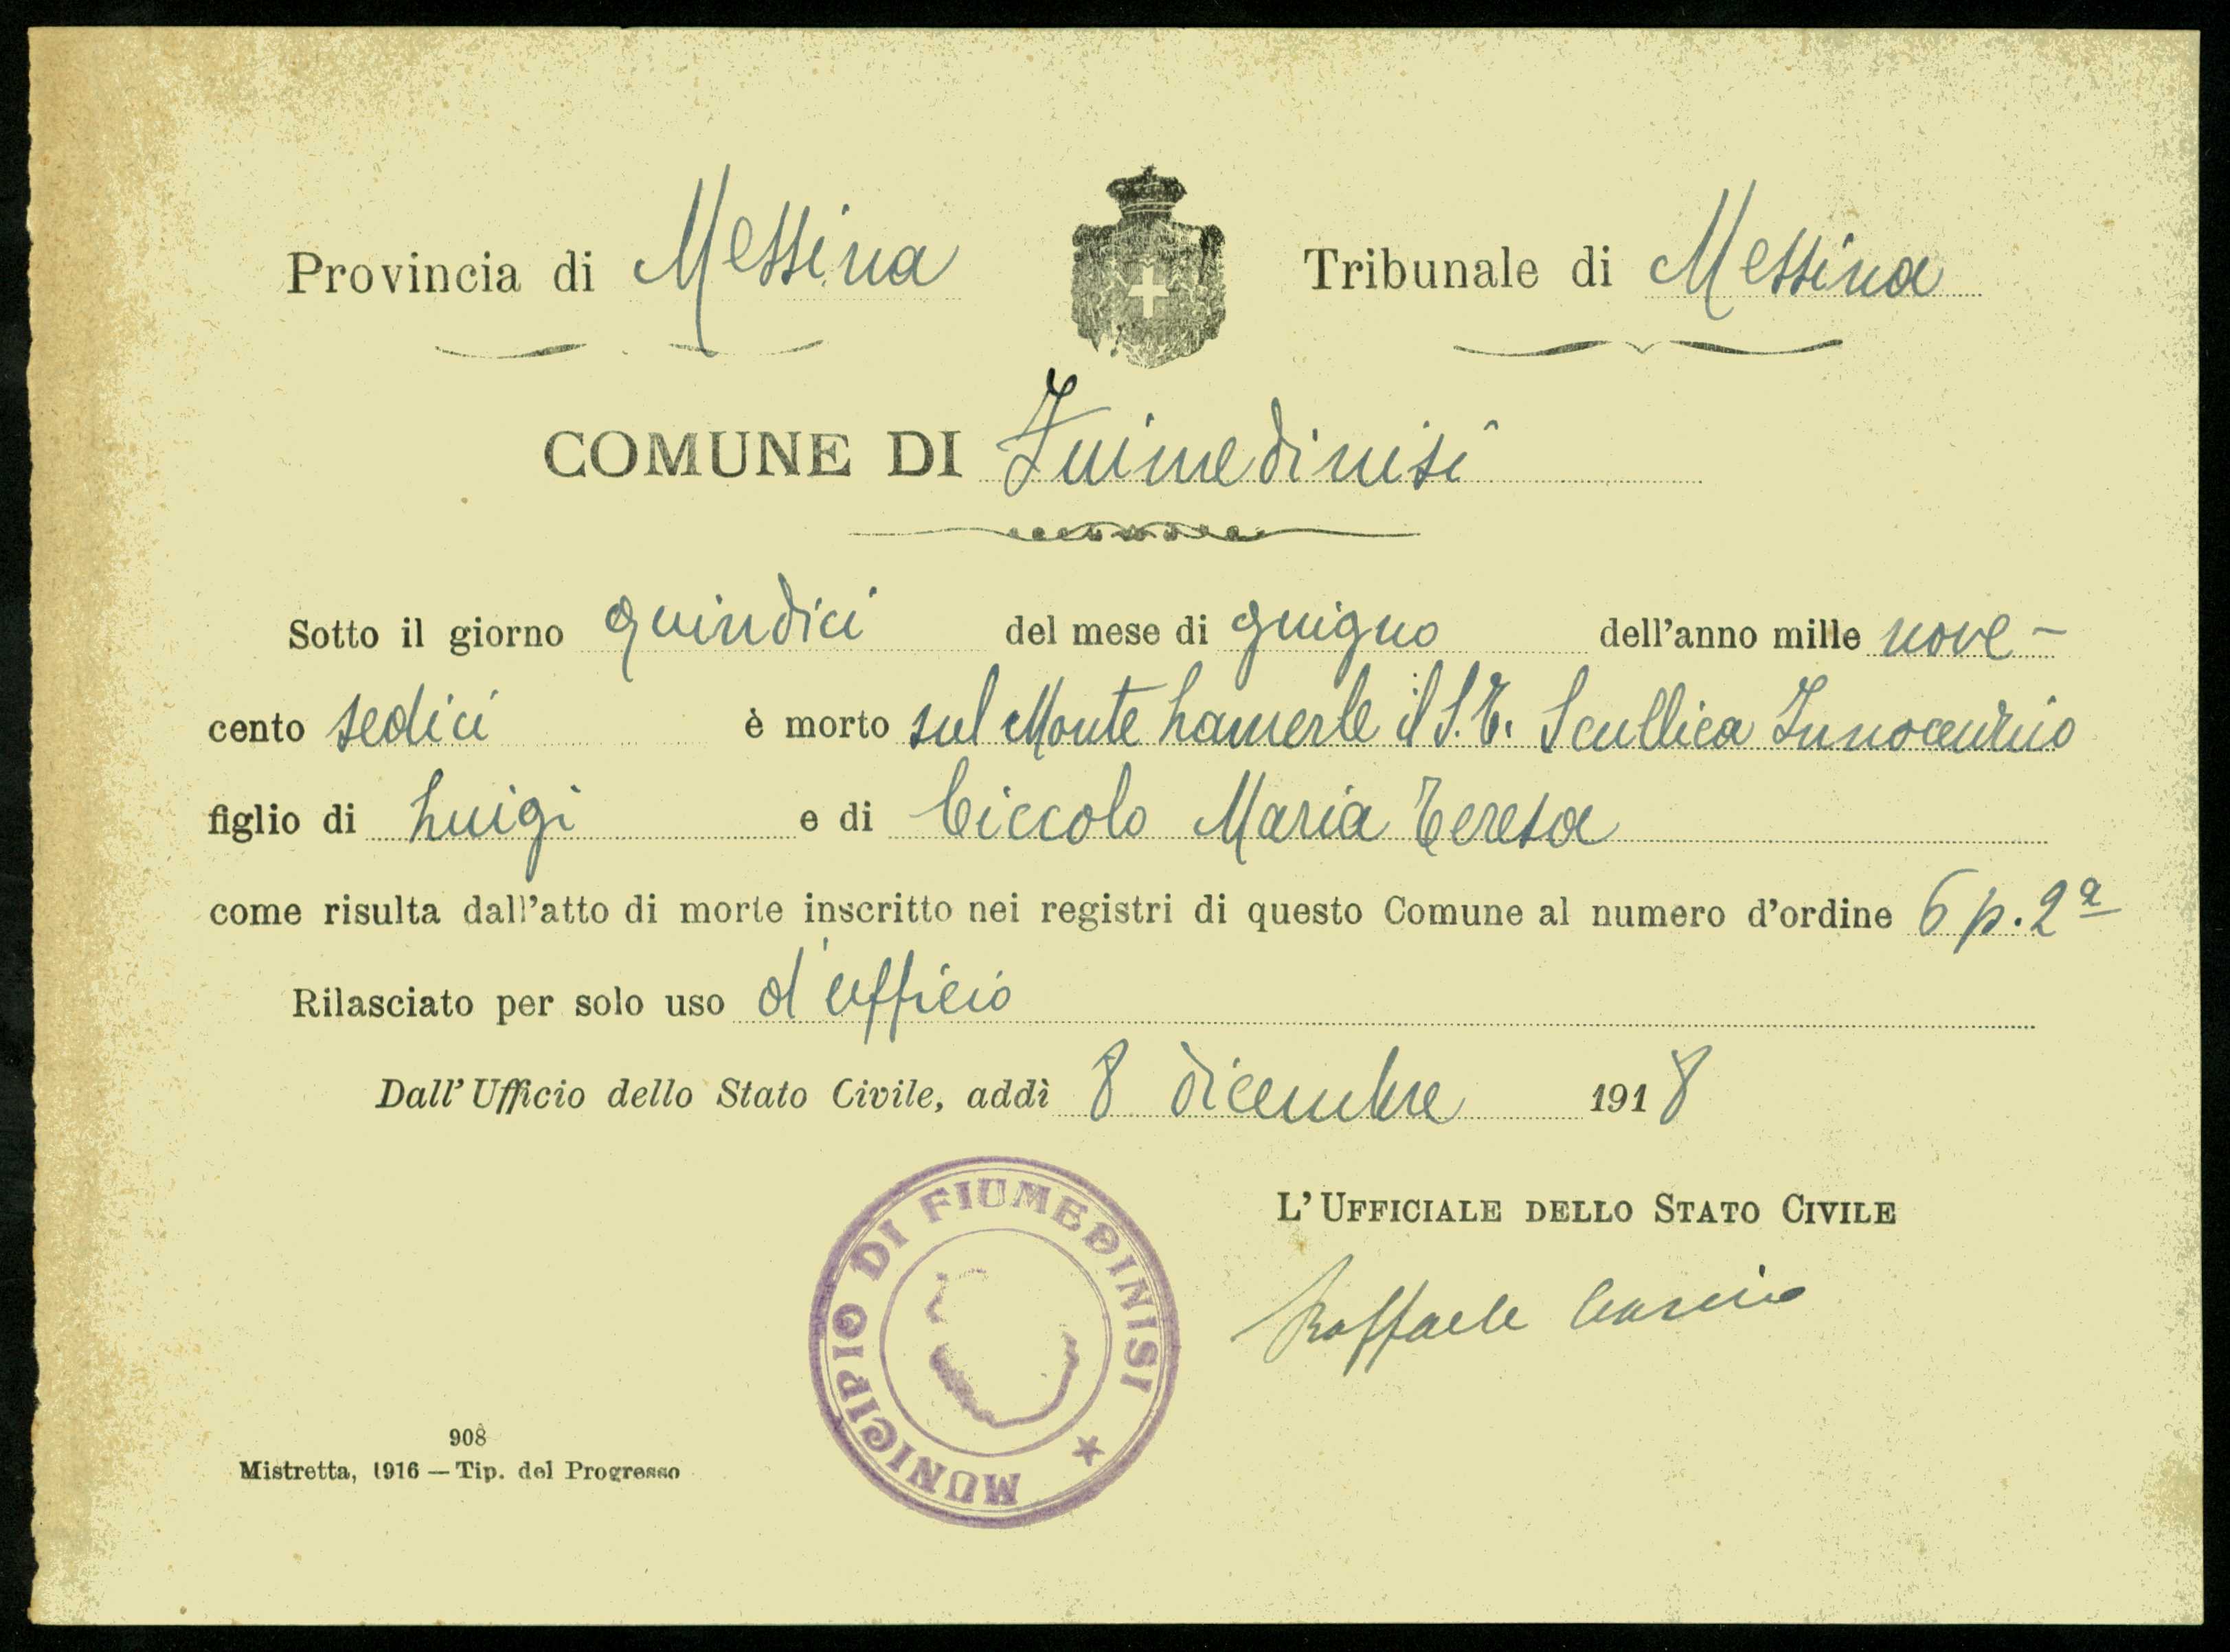 Provincia di Messina
Tribunale di Messina
COMUNE DI Fiumedinisi
Sotto il giorno quindici del mese di giugno dell'anno mille nove-
cento sedici è morto sul Monte Lamerle il S.T. Scullica Innocenzio
figlio di Luigi e di Ciccolo Maria Teresa
come risulta dall'atto di morte inscritto nei registri di questo Comune al numero d'ordine 6 p. 2ª
Rilasciato per solo uso d'ufficio
Dall'Ufficio dello Stato Civile, addì 8 dicembre 1918
MUNICIPIO DI FIUMEDINISI ★
L'UFFICIALE DELLO STATO CIVILE
Raffaele
908
Mistretta, 1916 — Tip. del Progresso